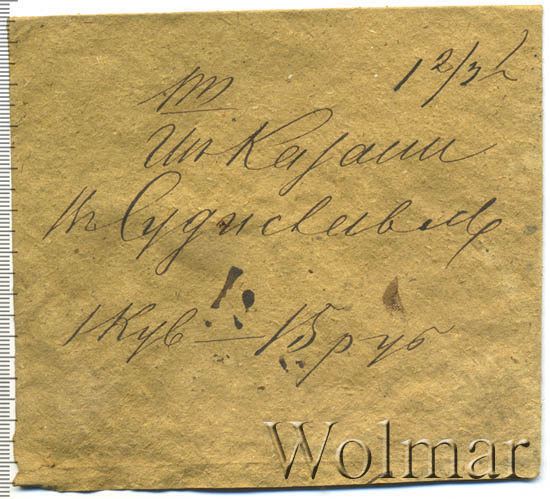 1 2/3 л
Изъ Казани
въ Судиславль
1 Кув — 15 руб
Wolmar